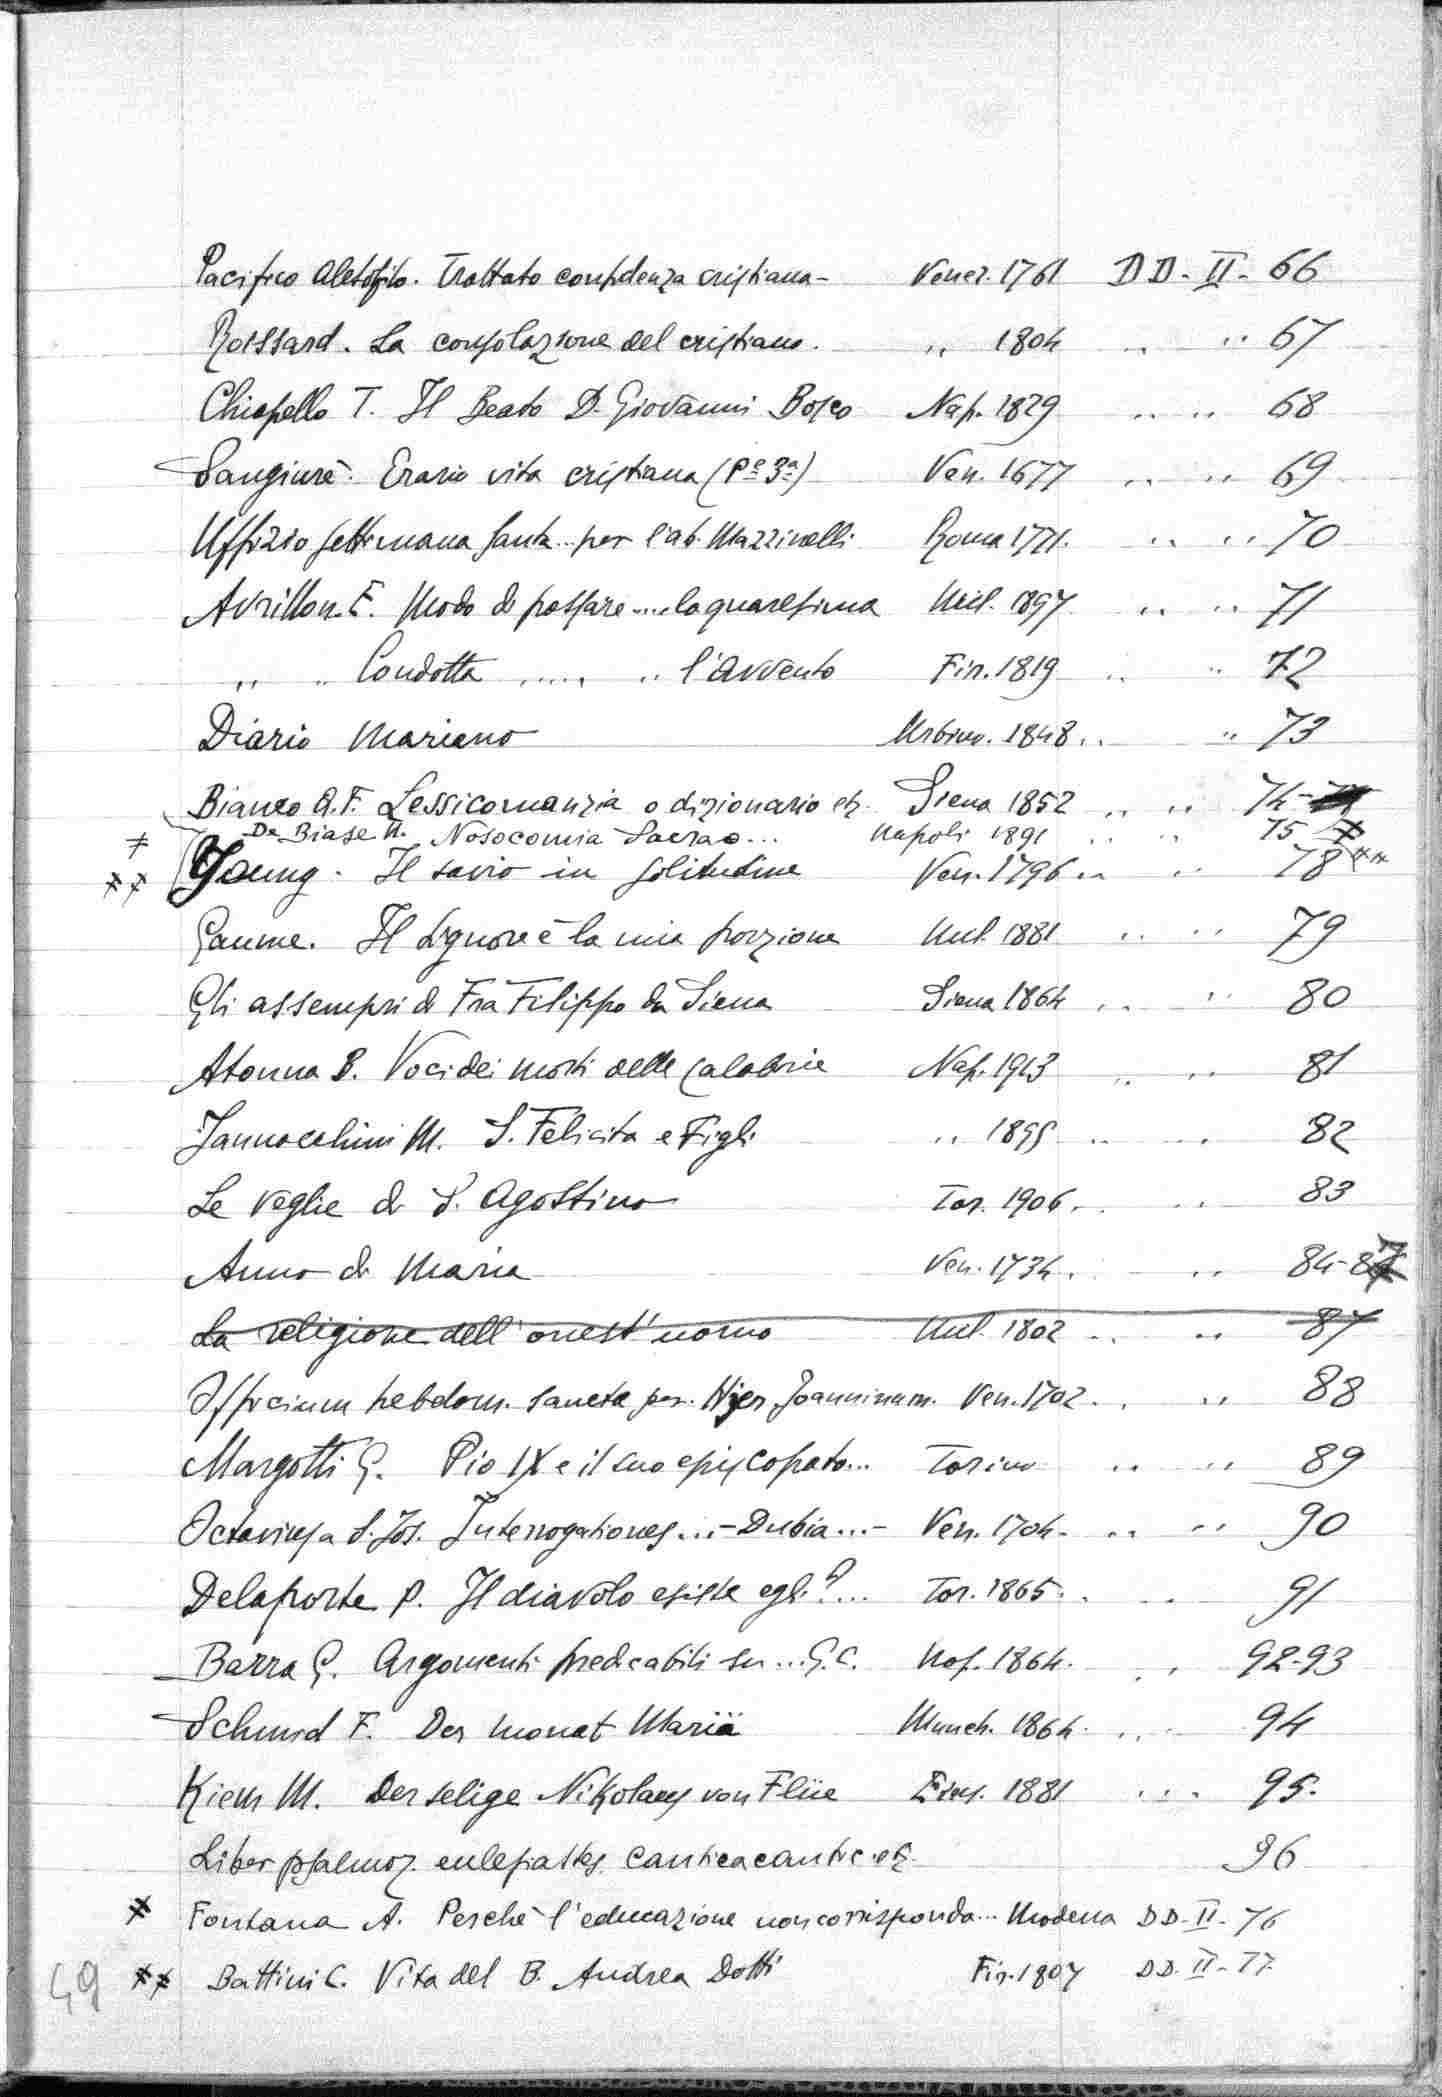 Pacifico Aletofilo. Trattato confidenza cristiana - Venez. 1761 DD- II- 66
Roissard. La consolazione del cristiano. ,, 1804 ,, ,, 67
Chiapello T. Il Beato D. Giovanni Bosco Nap. 1829 ,, ,, 68
Sangiurè. Erario vita cristiana (Pe 3a) Ven. 1677 ,, ,, 69
Uffizio settimana santa... per l'ab. Mazzinelli Roma 1771. ,, ,, 70
Avrillon. E. Modo di passare.... la quaresima Mil. 1897 ,, ,, 71
,, ,, Condotta ..... ,, l'avvento Fir. 1819 ,, ,, 72
Diario Mariano Urbino. 1848 ,, ,, 73
Bianco A.F. Lessicomanzia o dizionario etc. Siena 1852 ,, ,, 74-
≠ De Biase N. Nosocomia Sacra... Napoli 1891 ,, ,, 75 ≠
≠≠ Young. Il savio in solitudine Ven. 1796 ,, ,, 78 ≠≠
Gaume. Il Signore è la mia porzione Mil. 1881 ,, ,, 79
Gli assempri di Fra Filippo da Siena Siena 1864 ,, ,, 80
Atonna B. Voci dei morti delle Calabrie Nap. 1913 ,, ,, 81
Jannacchini M. S. Felicita e Figli ,, 1895 ,, ,, 82
Le veglie di S. Agostino Tor. 1906 ,, ,, 83
Anno di Maria Ven. 1734 ,, ,, 84-87
La religione dell'onest'uomo Mil. 1802 ,, ,, 87
Officium hebdom. sanctae per. Hier. Joanninum. Ven. 1702 ,, ,, 88
Margotti G. Pio IX e il suo episcopato... Torino ,, ,, 89
Octavius a S. Jos. Interrogationes...- Dubia...- Ven. 1704- ,, ,, 90
Delaporte P. Il diavolo esiste egli?... Tor. 1865. ,, ,, 91
Barra G. Argomenti predicabili su... G.C. Nap. 1864. ,, ,, 92-93
Schmid F. Der monat Mariä Munch. 1864. ,, ,, 94
Kiem M. Der selige Nikolaus von Flüe 1881 ,, ,, 95.
Liber psalmor. ecclesiastes cantica cantic. etc. 96
≠ Fontana A. Perchè l'educazione non corrisponda... Modena DD- II- 76
49 ≠≠ Battini C. Vita del B. Andrea Dotti Fir. 1807 DD. II- 77